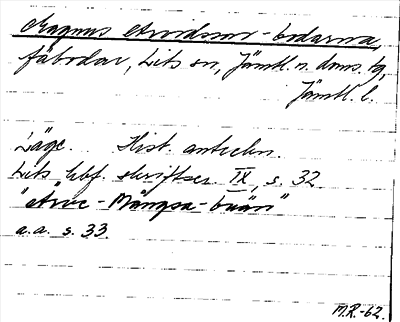 Magnus Arvidssar-bodarna,
fäbodar, Lits sn, Jämtl. n. doms. tg,
Jämtl. l.
Läge. Hist. anteckn.
Lits hbf. skriftser. IX, s. 32.
"Arve-Mångsa-buan"
a.a. s. 33.
M.R.-62.